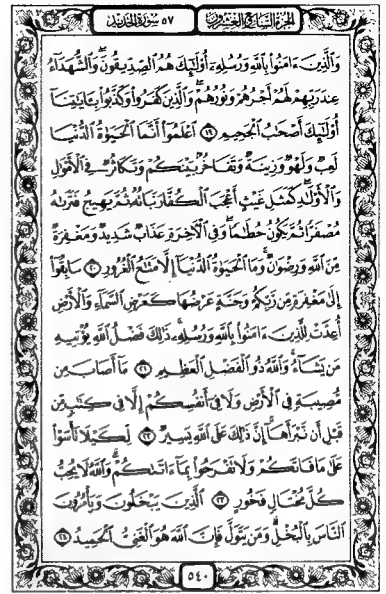 الجزء السابع والعشرون
٥٧ سورة الحديد
وَالَّذِينَ ءَامَنُوا۟ بِٱللَّهِ وَرُسُلِهِۦٓ أُو۟لَٰٓئِكَ هُمُ ٱلصِّدِّيقُونَ ۖ وَٱلشُّهَدَآءُ
عِندَ رَبِّهِمْ لَهُمْ أَجْرُهُمْ وَنُورُهُمْ ۖ وَٱلَّذِينَ كَفَرُوا۟ وَكَذَّبُوا۟ بِـَٔايَٰتِنَآ
أُو۟لَٰٓئِكَ أَصْحَٰبُ ٱلْجَحِيمِ ١٩ ٱعْلَمُوٓا۟ أَنَّمَا ٱلْحَيَوٰةُ ٱلدُّنْيَا
لَعِبٌ وَلَهْوٌ وَزِينَةٌ وَتَفَاخُرٌۢ بَيْنَكُمْ وَتَكَاثُرٌ فِى ٱلْأَمْوَٰلِ
وَٱلْأَوْلَٰدِ ۖ كَمَثَلِ غَيْثٍ أَعْجَبَ ٱلْكُفَّارَ نَبَاتُهُۥ ثُمَّ يَهِيجُ فَتَرَىٰهُ
مُصْفَرًّا ثُمَّ يَكُونُ حُطَٰمًا ۖ وَفِى ٱلْءَاخِرَةِ عَذَابٌ شَدِيدٌ وَمَغْفِرَةٌ
مِّنَ ٱللَّهِ وَرِضْوَٰنٌ ۚ وَمَا ٱلْحَيَوٰةُ ٱلدُّنْيَآ إِلَّا مَتَٰعُ ٱلْغُرُورِ ٢٠ سَابِقُوٓا۟
إِلَىٰ مَغْفِرَةٍ مِّن رَّبِّكُمْ وَجَنَّةٍ عَرْضُهَا كَعَرْضِ ٱلسَّمَآءِ وَٱلْأَرْضِ
أُعِدَّتْ لِلَّذِينَ ءَامَنُوا۟ بِٱللَّهِ وَرُسُلِهِۦ ۚ ذَٰلِكَ فَضْلُ ٱللَّهِ يُؤْتِيهِ
مَن يَشَآءُ ۚ وَٱللَّهُ ذُو ٱلْفَضْلِ ٱلْعَظِيمِ ٢١ مَآ أَصَابَ مِن
مُّصِيبَةٍ فِى ٱلْأَرْضِ وَلَا فِىٓ أَنفُسِكُمْ إِلَّا فِى كِتَٰبٍ مِّن
قَبْلِ أَن نَّبْرَأَهَآ ۚ إِنَّ ذَٰلِكَ عَلَى ٱللَّهِ يَسِيرٌ ٢٢ لِّكَيْلَا تَأْسَوْا۟
عَلَىٰ مَا فَاتَكُمْ وَلَا تَفْرَحُوا۟ بِمَآ ءَاتَىٰكُمْ ۗ وَٱللَّهُ لَا يُحِبُّ
كُلَّ مُخْتَالٍ فَخُورٍ ٢٣ ٱلَّذِينَ يَبْخَلُونَ وَيَأْمُرُونَ
ٱلنَّاسَ بِٱلْبُخْلِ ۗ وَمَن يَتَوَلَّ فَإِنَّ ٱللَّهَ هُوَ ٱلْغَنِىُّ ٱلْحَمِيدُ ٢٤
٥٤٠